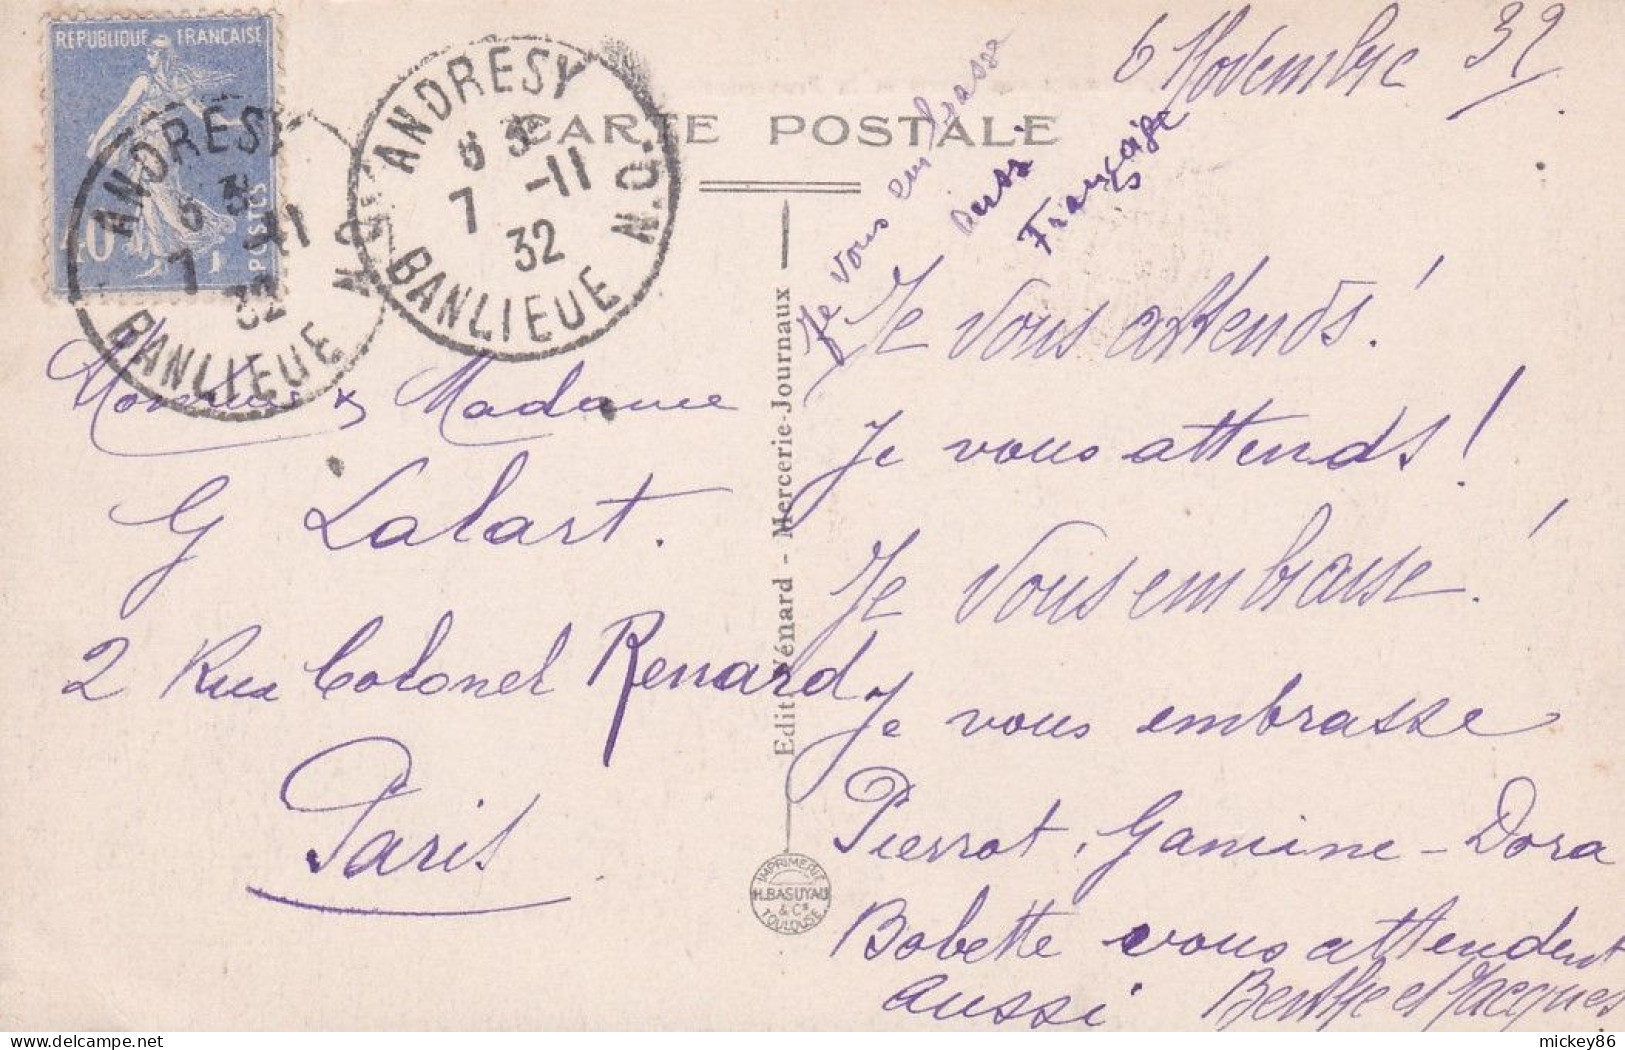 RÉPUBLIQUE FRANÇAISE
POSTES
ANDRESY
7 -11
32
BANLIEUE N.O.
ANDRESY
7 -11
32
BANLIEUE N.O.
CARTE POSTALE
6 Novembre 32
Je vous embrasse
aussi
Françoise
Monsieur & Madame
G Lalart.
2 Rue Colonel Renard
Paris
Edit. Vénard - Mercerie-Journaux
IMPRIMERIE
H. BASUYAU
& Cie
TOULOUSE
Je vous attends!
Je vous attends!
Je vous embrasse!
Je vous embrasse
Pierrot, Gamine - Dora
Bobette vous attendent
aussi Berthe et Jacques
mickey86